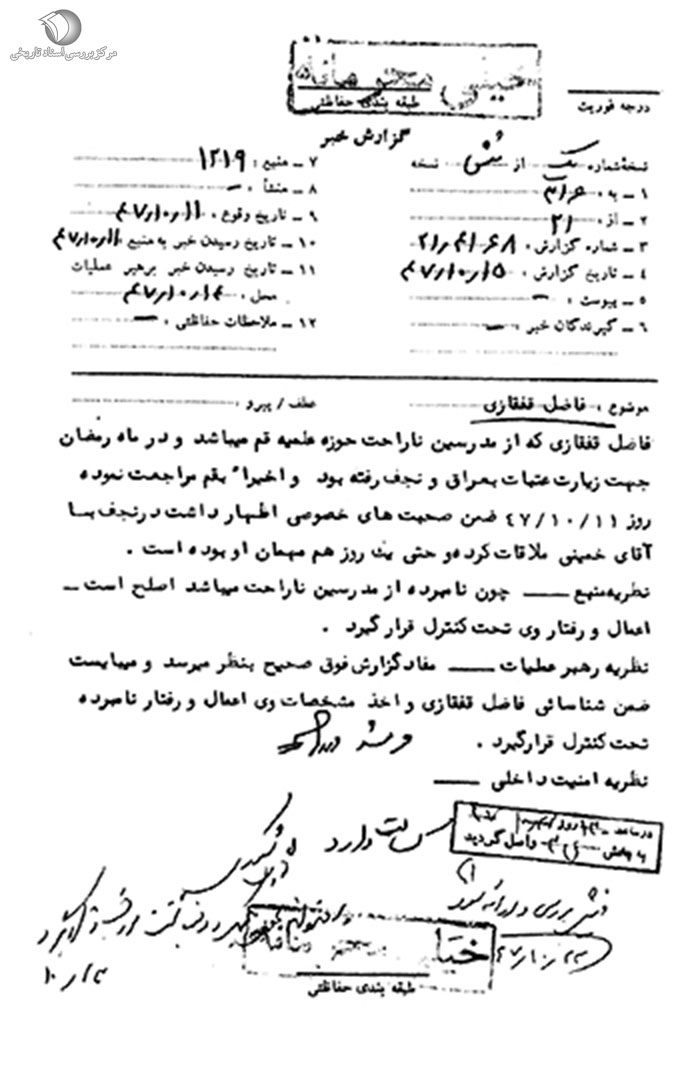 مرکز بررسی اسناد تاریخی
خیلی محرمانه
طبقه بندی حفاظتی
درجه فوریت
گزارش خبر
نسخه شماره یک از شش نسخه
۱ ــ به : ۳۱۶
۲ ــ از : ۲۱
۳ ــ شماره گزارش :
۴ ــ تاریخ گزارش : ۴۷/۱۰/۱۵
۵ ــ پیوست : ــ
۶ ــ گیرندگان خبر : ــ
۷ ــ منبع : ۱۲۱۹
۸ ــ منشأ : ــ
۹ ــ تاریخ وقوع : ۴۷/۱۰/۱۱
۱۰ ــ تاریخ رسیدن خبر به منبع ۴۷/۱۰/۱۱
۱۱ ــ تاریخ رسیدن خبر برهبر عملیات
محل : ۴۷/۱۰/۱۴
۱۲ ــ ملاحظات حفاظتی : ــ
موضوع : فاضل قفقازی
عطف / پیرو :
فاضل قفقازی که از مدرسین ناراحت حوزه علمیه قم میباشد و در ماه رمضان
جهت زیارت عتبات بعراق و نجف رفته بود و اخیراً بقم مراجعت نموده
روز ۴۷/۱۰/۱۱ ضمن صحبت های خصوصی اظهار داشت در نجف با
آقای خمینی ملاقات کرده و حتی یک روز هم مهمان او بوده است .
نظریه منبع ــــ چون نامبرده از مدرسین ناراحت میباشد اصلح است ــ
اعمال و رفتار وی تحت کنترل قرار گیرد .
نظریه رهبر عملیات ــــ مفاد گزارش فوق صحیح بنظر میرسد و میبایست
ضمن شناسائی فاضل قفقازی و اخذ مشخصات وی اعمال و رفتار نامبرده
تحت کنترل قرار گیرد .
نظریه امنیت داخلی ــــ
در ساعت روز
به بخش ۳۱۶ واصل گردید
دارد
بررسی و ارائه شود
۴۷/۱۰/۲۳
خیلی
طبقه بندی حفاظتی